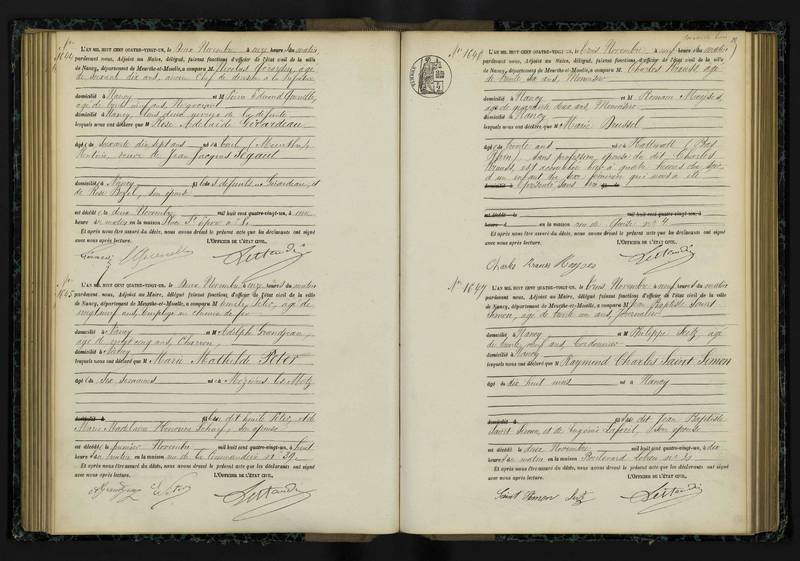 No 1644
L'AN MIL HUIT CENT QUATRE-VINGT-UN, le Deux Novembre à onze heures du matin,
pardevant nous, Adjoint au Maire, délégué, faisant fonctions d'officier de l'état civil de la ville
de Nancy, département de Meurthe-et-Moselle, a comparu M Nicolas Gérardin, âgé
de soixante dix ans, ancien Chef de
domicilié à Nancy et M Edmond
âgé de trente neuf ans, Négociant
domicilié à Nancy,
lesquels nous ont déclaré que M Rose Adélaïde Girardeau
âgé de soixante dix sept ans né à Toul (Meurthe),
Rentière, veuve de Jean Jacques Ségault
domicilié à Nancy fille des défunts Girardeau, et
de Rose son épouse
est décédée le deux Novembre mil huit cent quatre-vingt-un, à une
heure du matin en la maison Rue St Epvre no 8.
Et après nous être assuré du décès, nous avons dressé le présent acte que les déclarants ont signé
avec nous après lecture. L'OFFICIER DE L'ÉTAT CIVIL,
No 1645
L'AN MIL HUIT CENT QUATRE-VINGT-UN, le Deux Novembre à onze heures du matin
pardevant nous, Adjoint au Maire, délégué, faisant fonctions d'officier de l'état civil de la ville
de Nancy, département de Meurthe-et-Moselle, a comparu M Peter, âgé de
vingt neuf ans, Employé au chemin de fer
domicilié à Nancy et M Adolphe Grandjean,
âgé de vingt cinq ans, Charron,
domicilié à Nancy
lesquels nous ont déclaré que M Marie Mathilde Peter
âgé de Six Semaines né à Mézières les Metz
domicilié à fille du dit Peter, et de
Marie Madeleine Honorine son épouse
est décédée le premier Novembre mil huit cent quatre-vingt-un, à huit
heures du matin en la maison rue de la Commanderie no 39.
Et après nous être assuré du décès, nous avons dressé le présent acte que les déclarants ont signé
avec nous après lecture. L'OFFICIER DE L'ÉTAT CIVIL,
No 1646
L'AN MIL HUIT CENT QUATRE-VINGT-UN, le trois Novembre à neuf heures du matin
pardevant nous, Adjoint au Maire, délégué, faisant fonctions d'officier de l'état civil de la ville
de Nancy, département de Meurthe-et-Moselle, a comparu M Charles Krauss, âgé
de trente six ans, Menuisier
domicilié à Nancy et M Romain
âgé de quarante deux ans, Menuisier
domicilié à Nancy
lesquels nous ont déclaré que M Marie
âgé de trente ans né à (Bas
Rhin), sans profession, épouse du dit Charles
Krauss, est accouchée hier à quatre heures du soir
d'un enfant du sexe que nous a été
domicilié à présenté sans vie
est décédé le mil huit cent quatre-vingt-un, à
heure d en la maison rue no 4
Et après nous être assuré du décès, nous avons dressé le présent acte que les déclarants ont signé
avec nous après lecture. L'OFFICIER DE L'ÉTAT CIVIL,
Charles Krauss
No 1647
L'AN MIL HUIT CENT QUATRE-VINGT-UN, le trois Novembre à neuf heures du matin
pardevant nous, Adjoint au Maire, délégué, faisant fonctions d'officier de l'état civil de la ville
de Nancy, département de Meurthe-et-Moselle, a comparu M Jean Baptiste Saint
Simon, âgé de trente un ans, Journalier
domicilié à Nancy et M Philippe âgé
de trente neuf ans, Cordonnier
domicilié à Nancy
lesquels nous ont déclaré que M Raymond Charles Saint Simon
âgé de dix huit mois né à Nancy
domicilié à fils du dit Jean Baptiste
Saint Simon, et de Eugénie son épouse
est décédé le deux Novembre mil huit cent quatre-vingt-un, à dix
heures du matin en la maison Boulevard Lobau no 29
Et après nous être assuré du décès, nous avons dressé le présent acte que les déclarants ont signé
avec nous après lecture. L'OFFICIER DE L'ÉTAT CIVIL,
Saint Simon